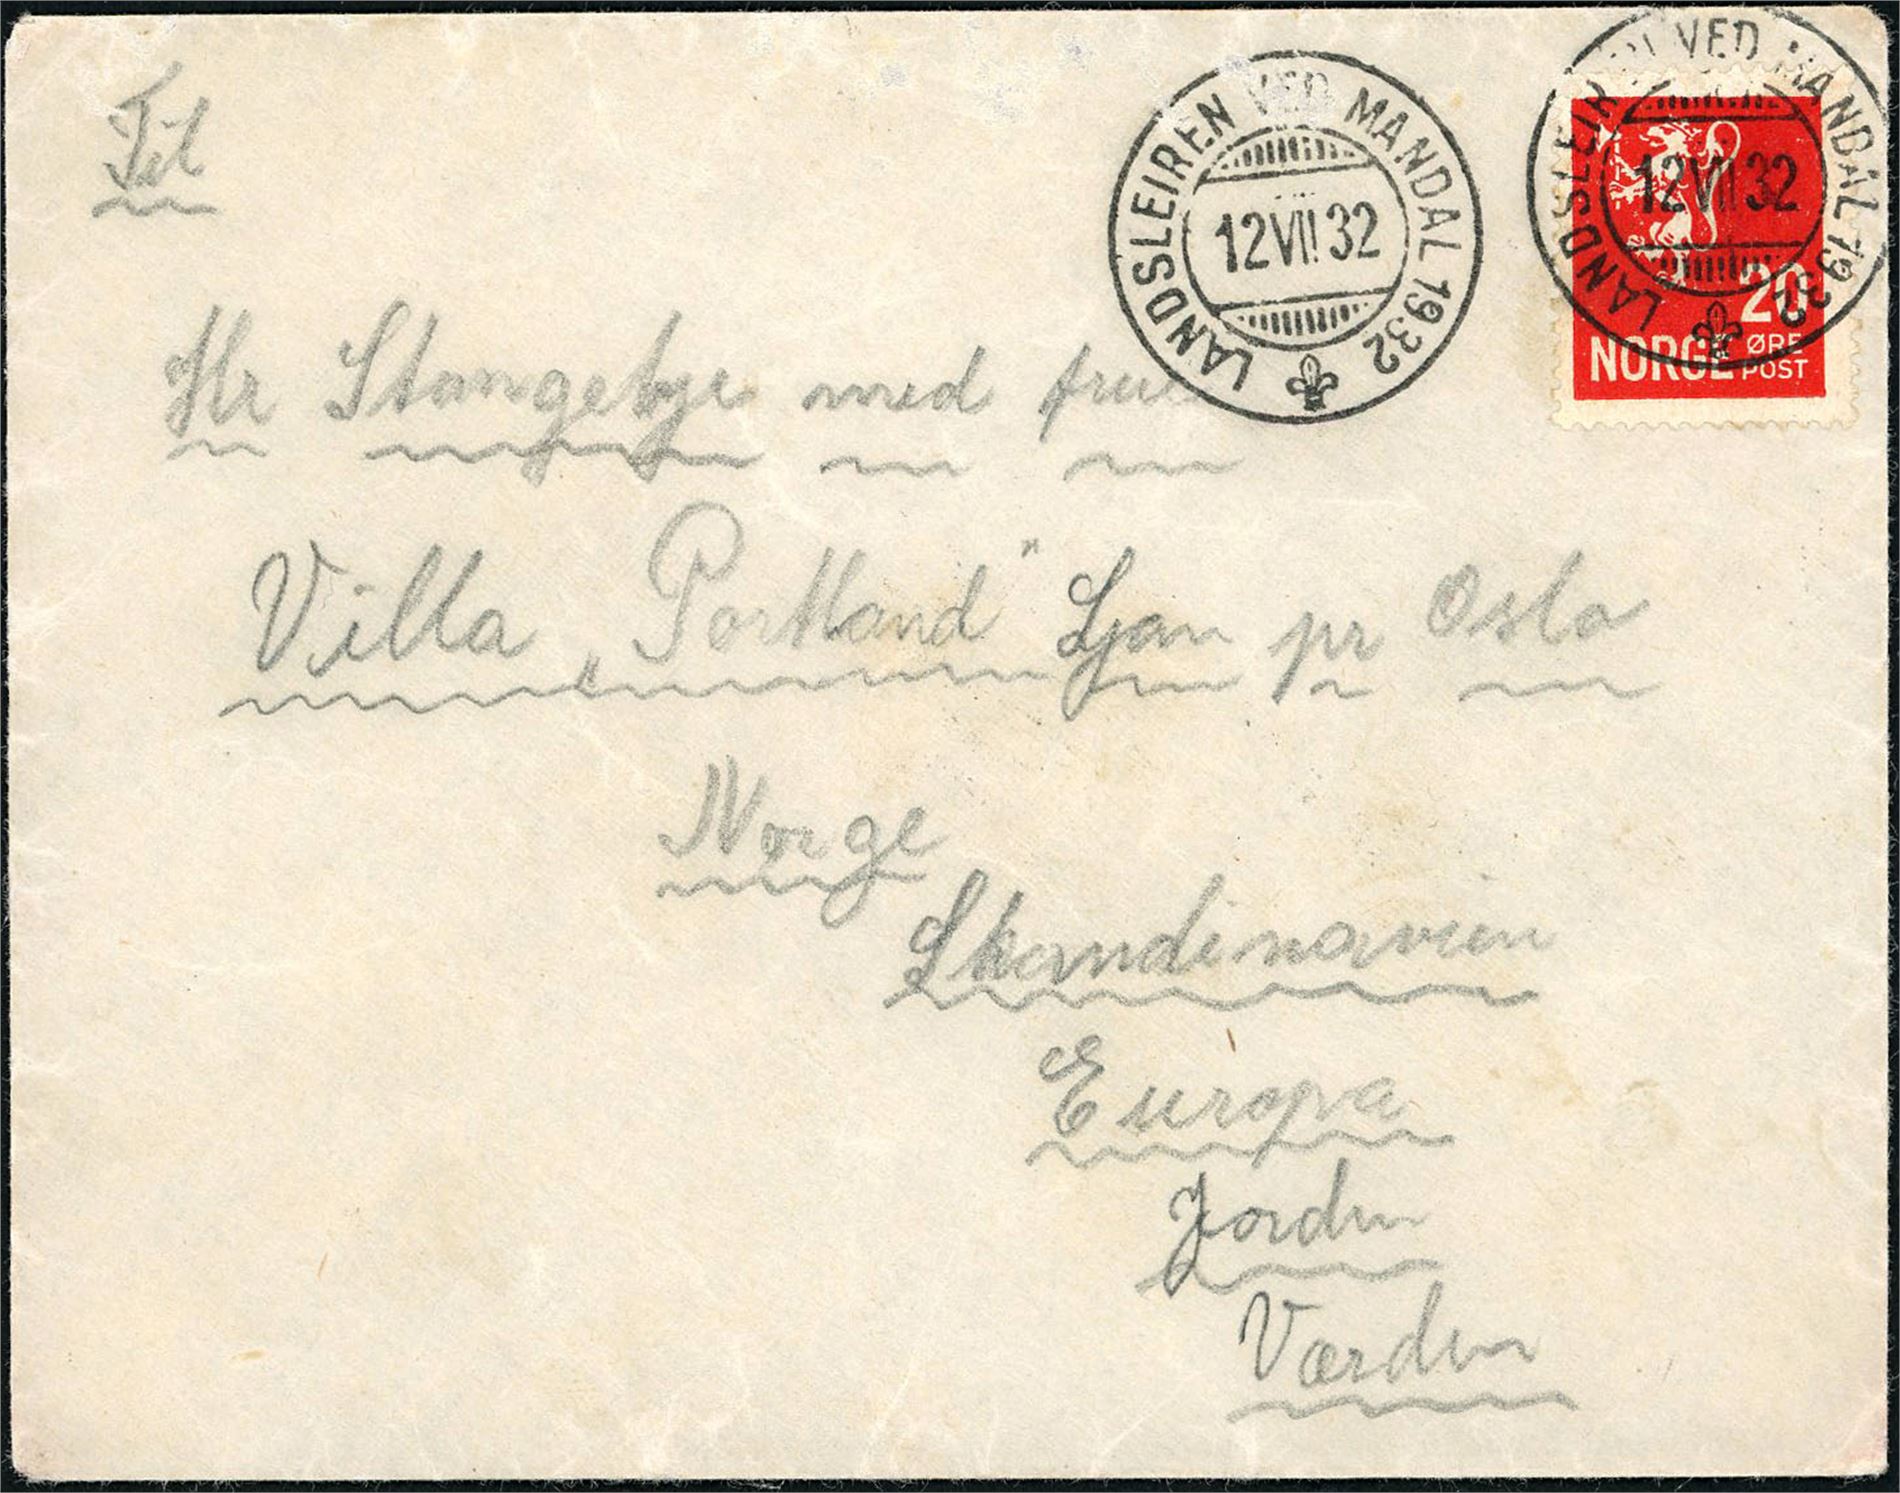 Til
LANDSLEIREN VED MANDAL 1932
12 VII 32
LANDSLEIREN VED MANDAL 1932
12 VII 32
20
NORGE ØRE
POST
Hr Stangebye med frue
Villa „Portland" Ljan pr Oslo
Norge
Skandinavien
Europa
Jorden
Værden